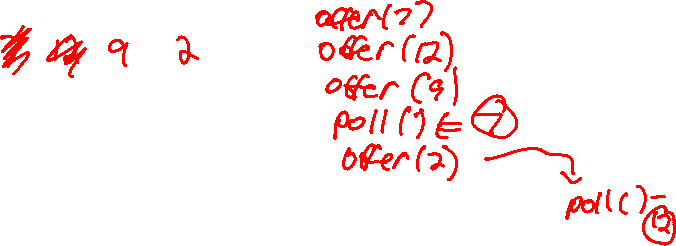 9 2
offer(7)
offer(12)
offer(9)
poll() ← 7
offer(2)
poll() - 12